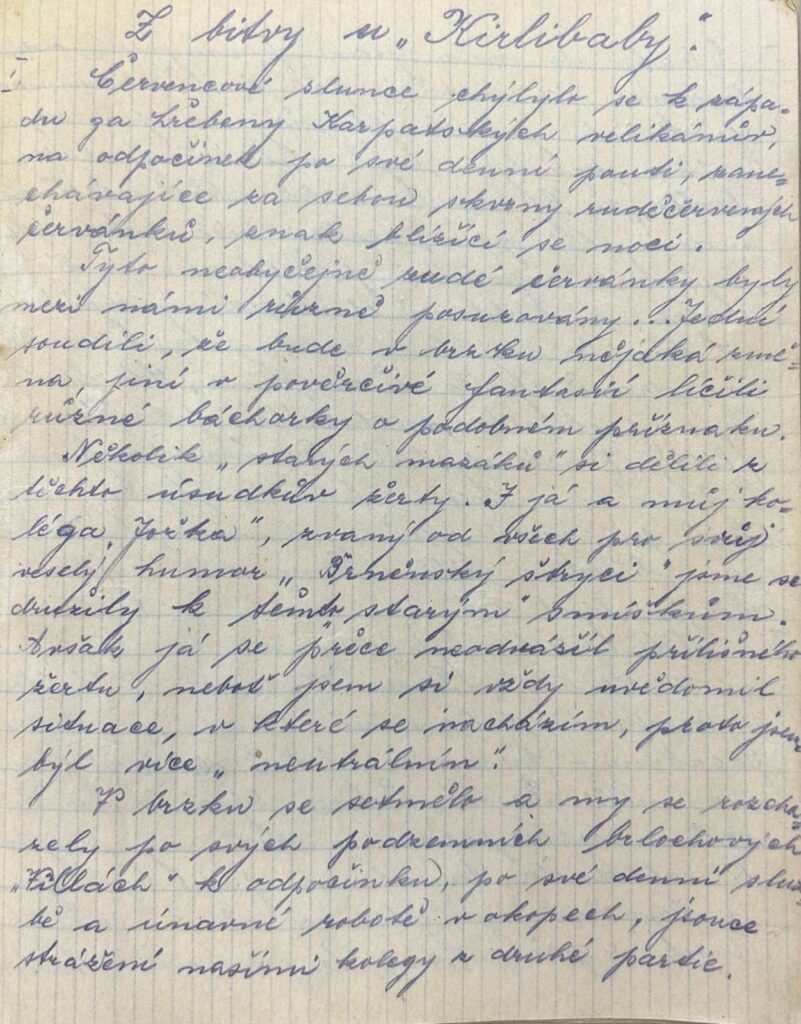 Z bitvy u „Kirlibaby".
I Červencové slunce chýlylo se k zápa-
du za hřebeny Karpatských velikánův,
na odpočinek po své denní pouti, zane-
chávajíce za sebou skvrny ruděčervených
červánků, znak blížící se noci.
Tyto neobyčejně rudé červánky byly
mezi námi různě posuzovány... Jedni
soudili, že bude v brzku nějaká změ-
na, jiní v pověrčivé fantasii líčili
různé báchorky o podobném příznaku.
Několik „starých mazáků" si dělili z
těchto úsudkův žerty. I já a můj ko-
léga „Jožka", zvaný od všech pro svůj
veselý humor „Brněnský štrycl" jsme se
družily k těmto „starým" smíškům.
Avšak já se přece neodvážil přílišného
žertu, neboť jsem si vždy uvědomil
situace, v které se nacházím, proto jsem
býl více „neutrálnín".
V brzku se setmělo a my se rozchá-
zely po svých podzemních brlochových
„Villách" k odpočinku, po své denní služ-
bě a únavné robotě v okopech, jsouce
strážení našimi kolegy z druhé partie.